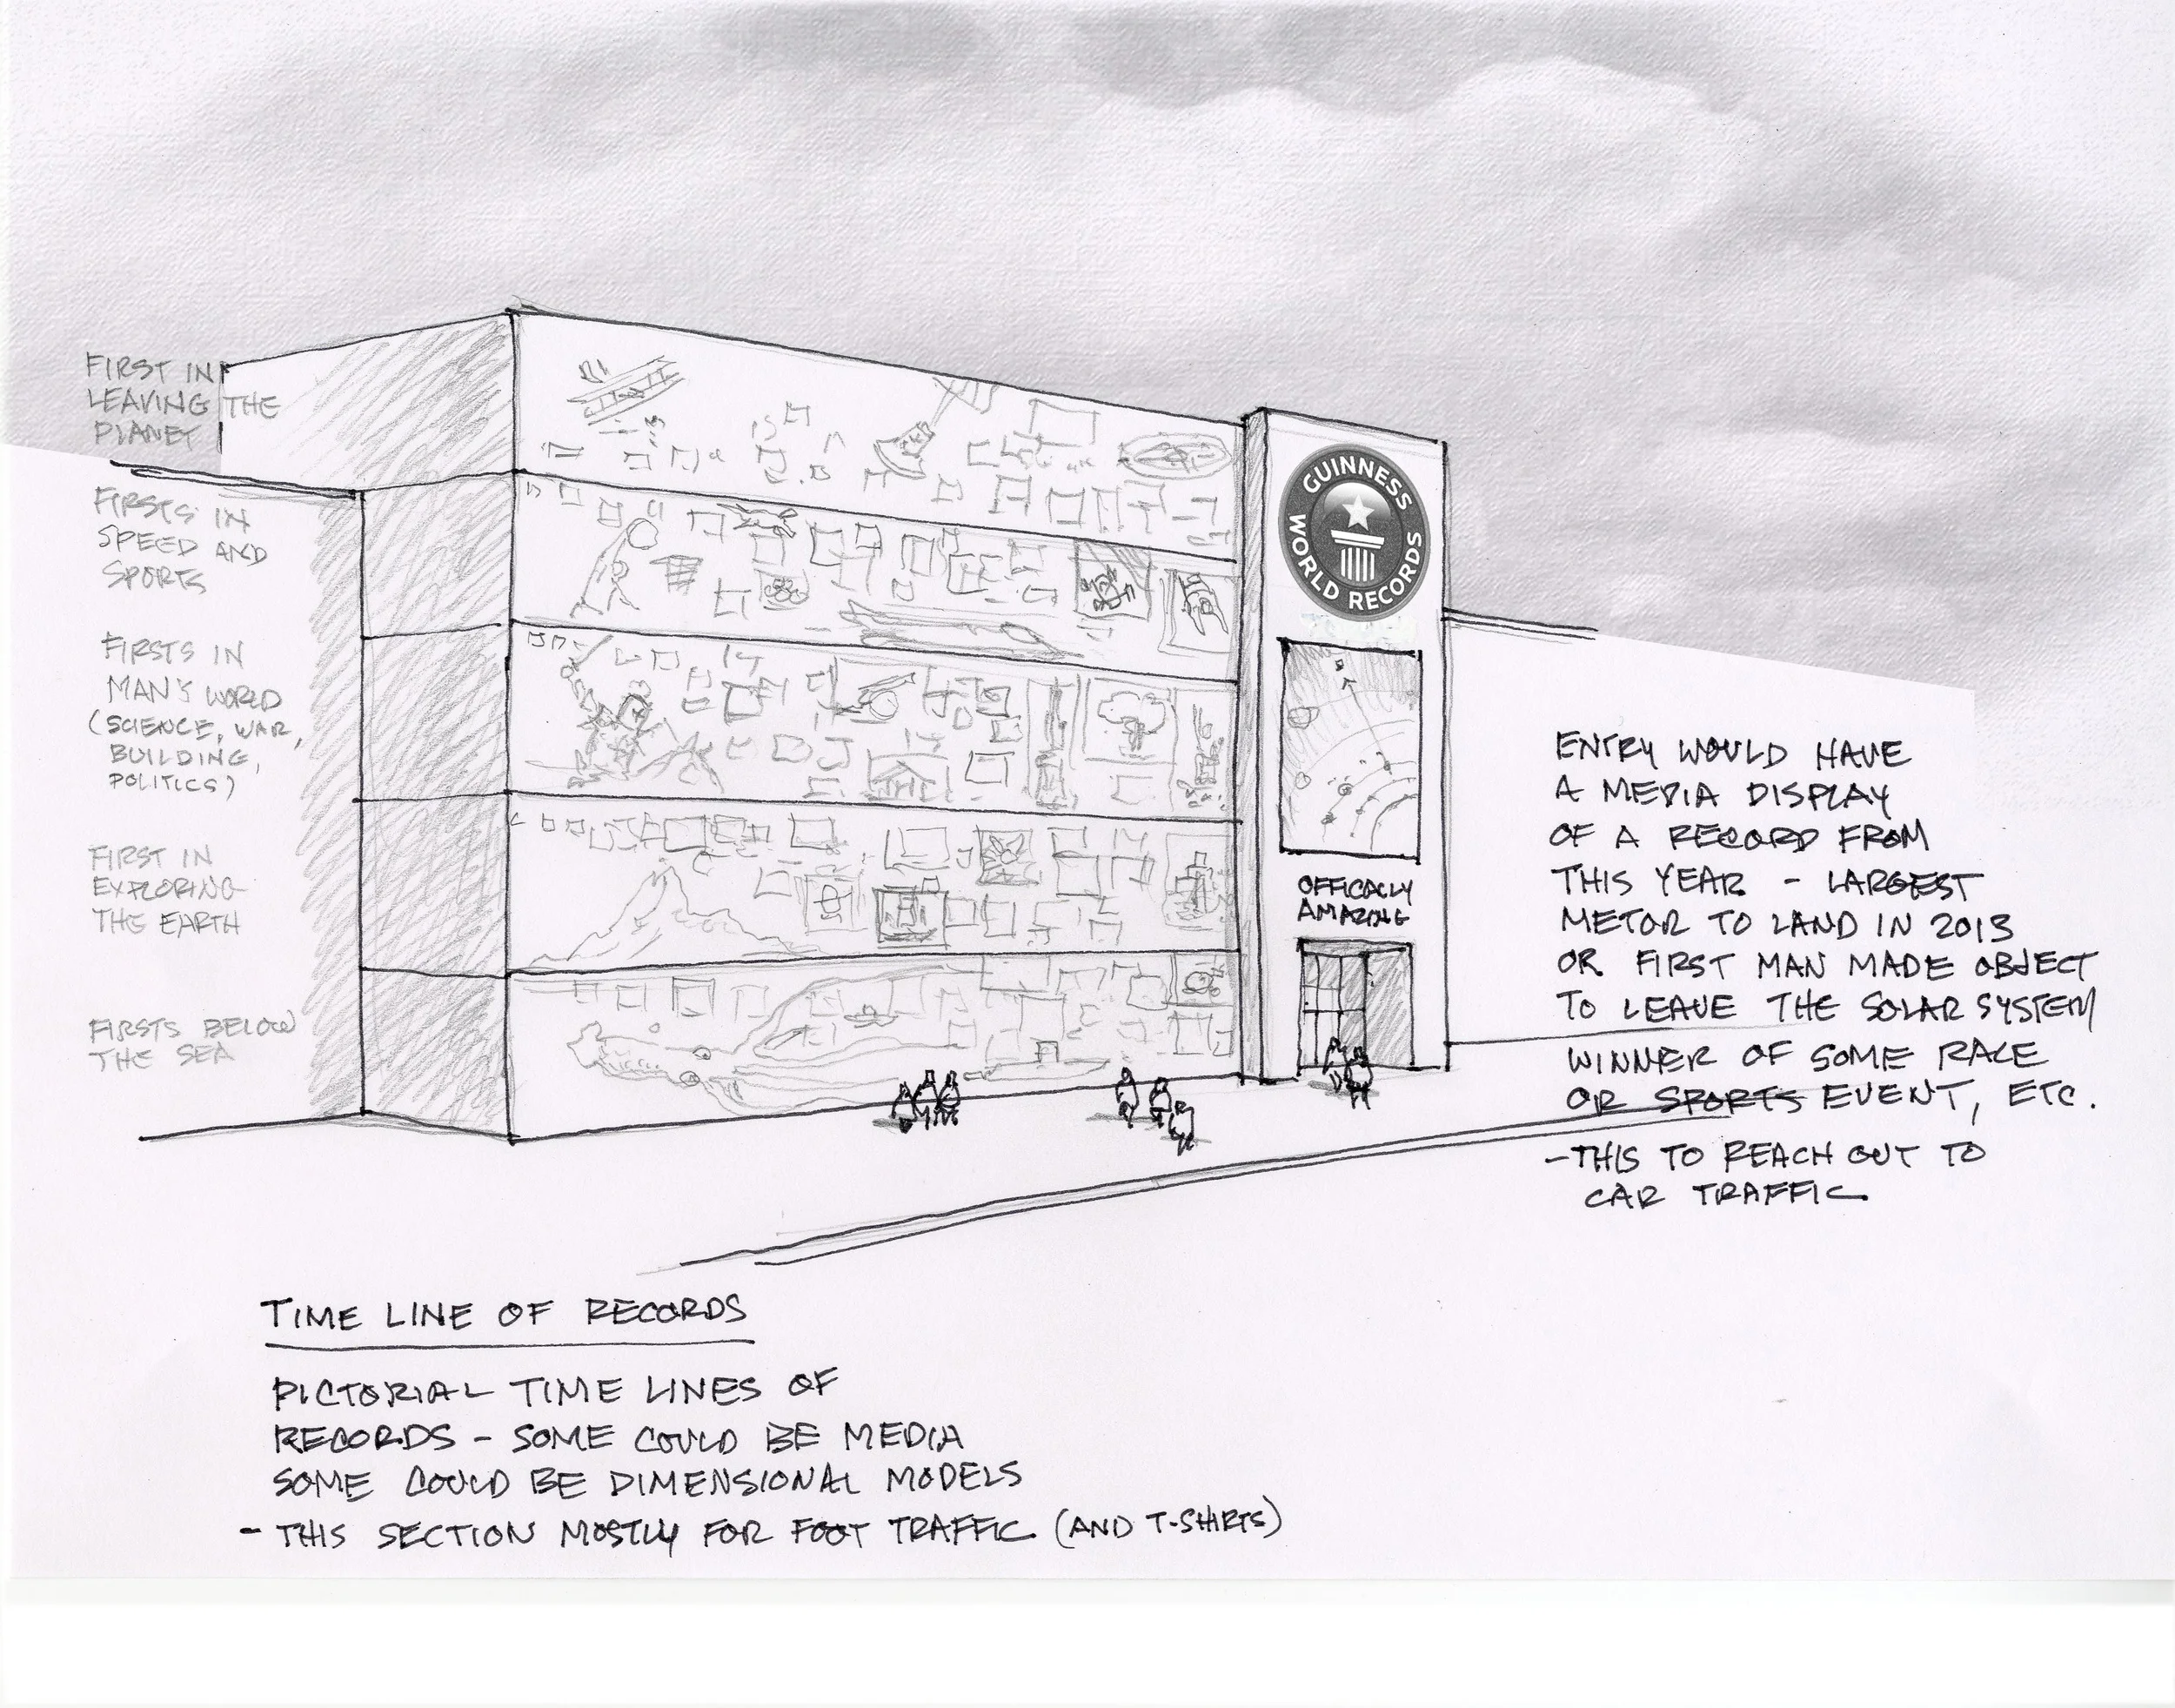 FIRST IN
LEAVING THE
PLANET
FIRSTS IN
SPEED AND
SPORTS
FIRSTS IN
MAN'S WORLD
(SCIENCE, WAR,
BUILDING,
POLITICS)
FIRST IN
EXPLORING
THE EARTH
FIRSTS BELOW
THE SEA
GUINNESS
WORLD RECORDS
OFFICALLY
AMAZING
ENTRY WOULD HAVE
A MEDIA DISPLAY
OF A RECORD FROM
THIS YEAR - LARGEST
METOR TO LAND IN 2013
OR FIRST MAN MADE OBJECT
TO LEAVE THE SOLAR SYSTEM
WINNER OF SOME RACE
OR SPORTS EVENT, ETC.
- THIS TO REACH OUT TO
CAR TRAFFIC
TIME LINE OF RECORDS
PICTORIAL TIME LINES OF
RECORDS - SOME COULD BE MEDIA
SOME COULD BE DIMENSIONAL MODELS
- THIS SECTION MOSTLY FOR FOOT TRAFFIC (AND T-SHIRTS)